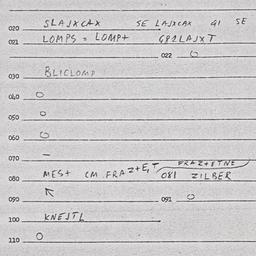 020 SLAJXCAX SE LAJXCAX GI SE
021 LOMPS = LOMP+ G81LAJXT
022 O
030 BLICLOMP
040 O
050 O
060 O
070 —
080 MES+ CM FRAZ+E,T FRAZ+ETNE
081 ZILBER
090 ↖ 091 O
100 KNEJTL
110 O